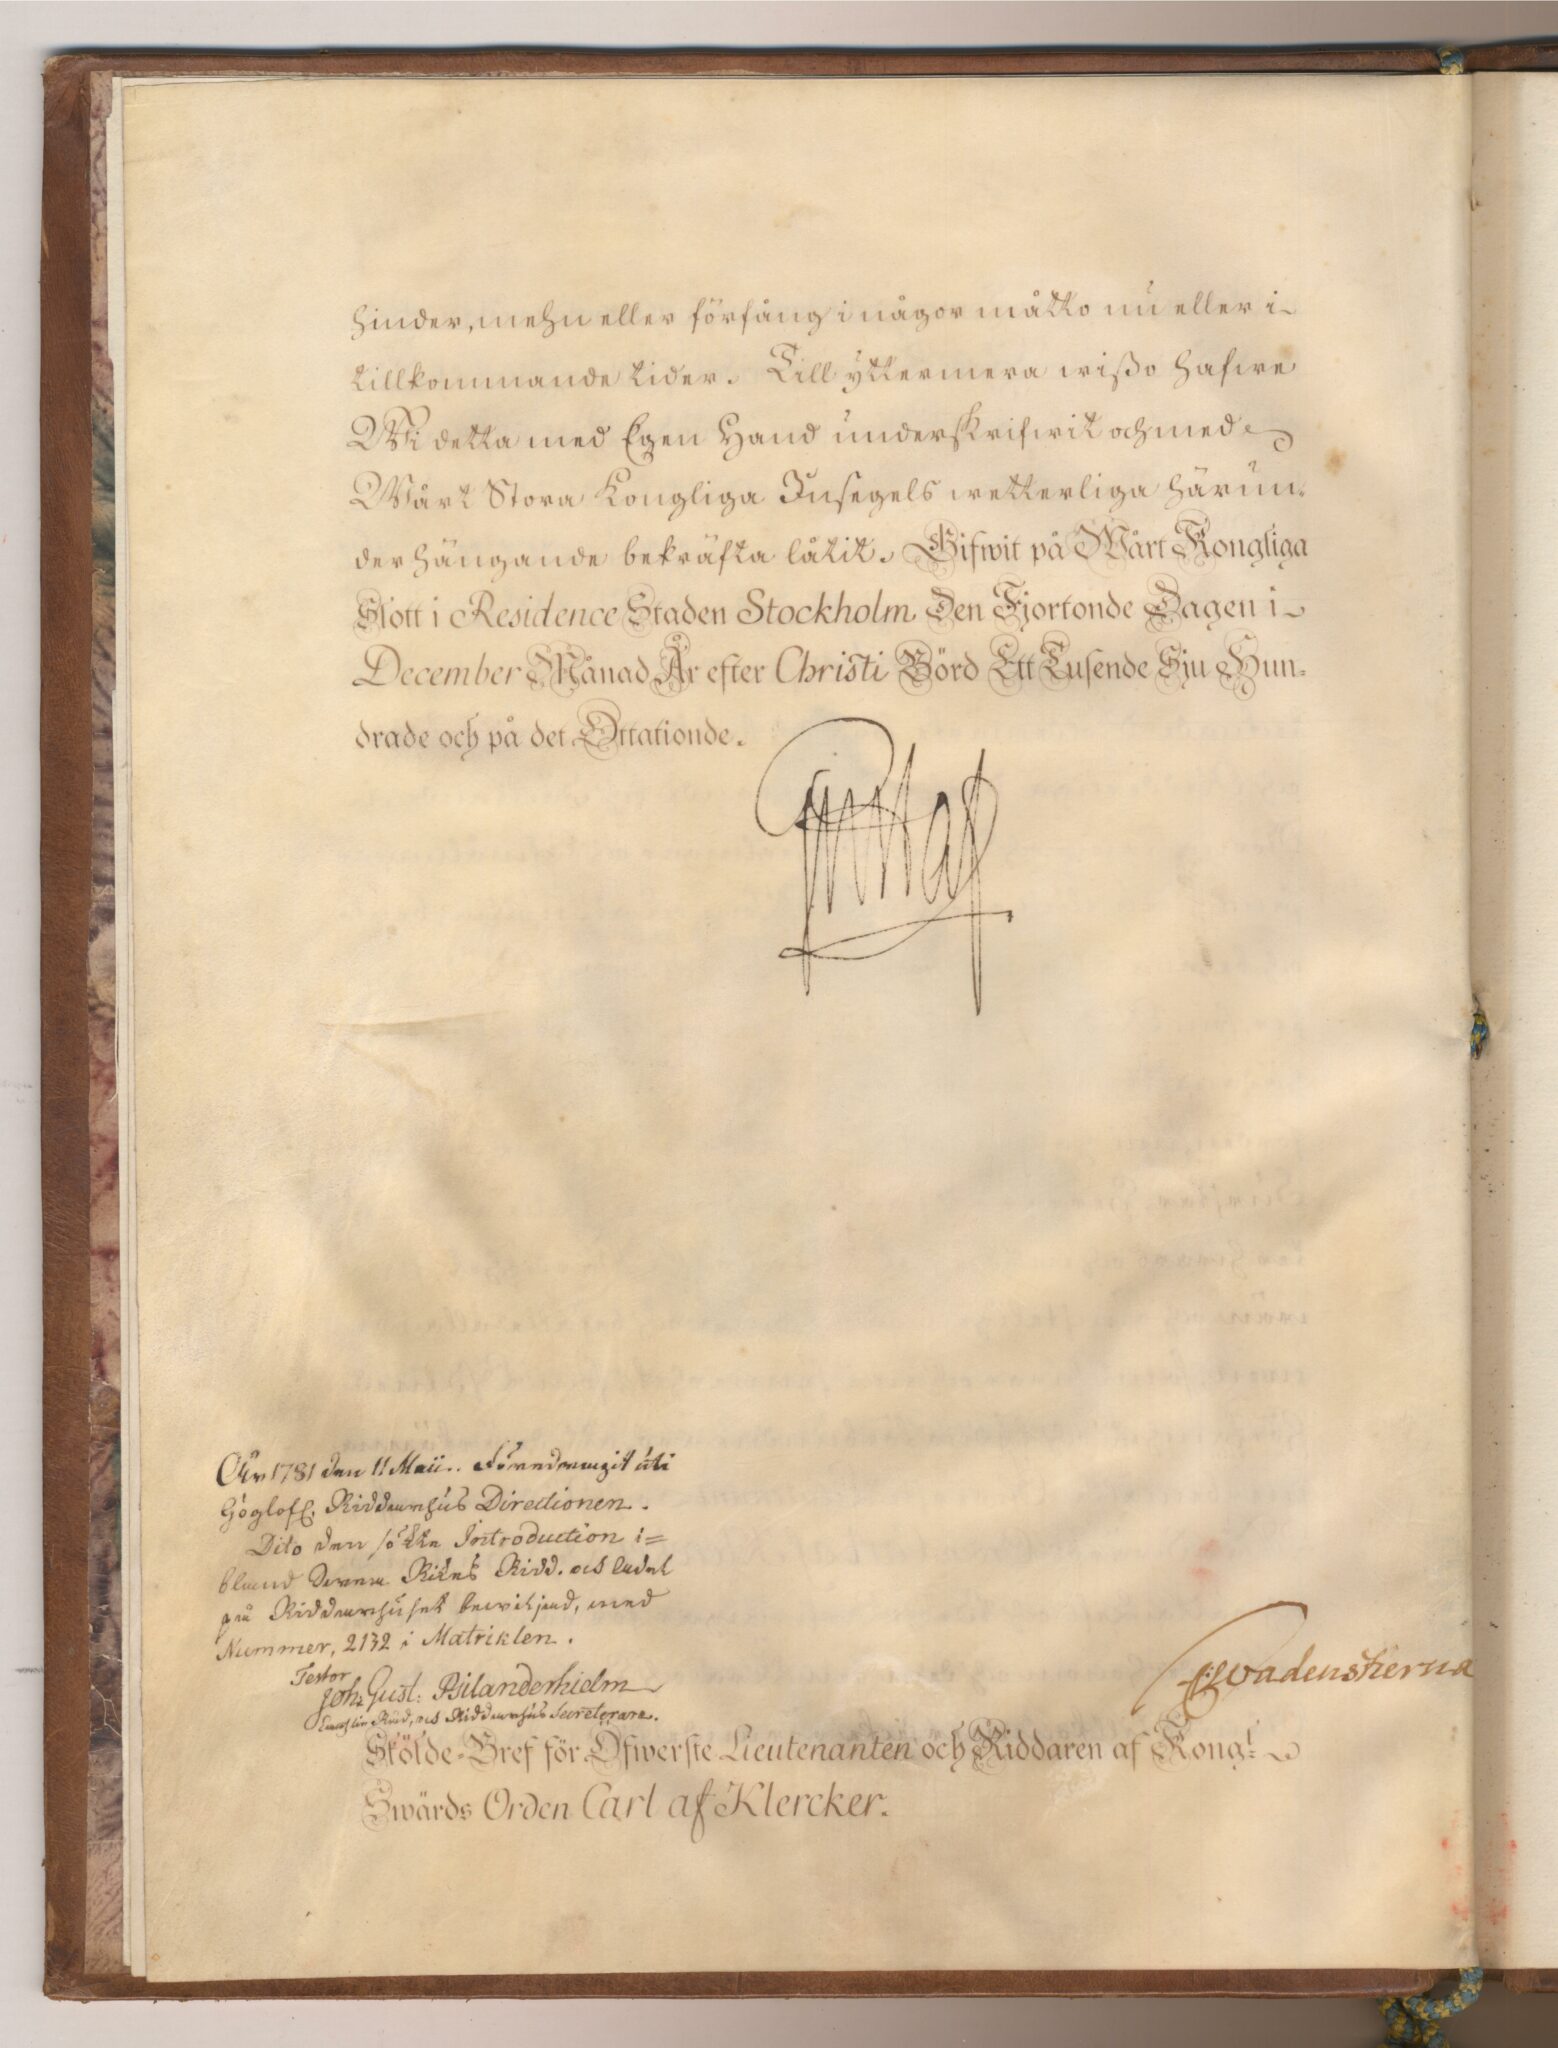 hinder, mehn eller förfång i någor måtto nu eller i
tillkommande tider. Till yttermera wißo hafwe
Wi detta med Egen Hand underskrifwit och med
Wårt Stora Kongliga Insegels wetterliga härun-
derhängande bekräfta låtit. Gifwit på Wårt Kongliga
Slott i Residence Staden Stockholm Den Fjortonde Dagen i
December Månad År efter Christi Börd Ett Tusende Sju Hun-
drade och på det Ottationde.
Gustaf
År 1781 den 11 Maii
Riddarhus Directionen.
Dito den Introduction i-
bland Rikets Ridd. och Adel
på Riddarhuset bewiljad, med
Nummer, 2132 i Matriklen.
Testor
Joh: Gust: Psilanderhielm
och Riddarhus Secreterare.
Wadenstierna
Skölde-Bref för Öfwerste Lieutenanten och Riddaren af Kongl.
Swärds Orden Carl af Klercker.